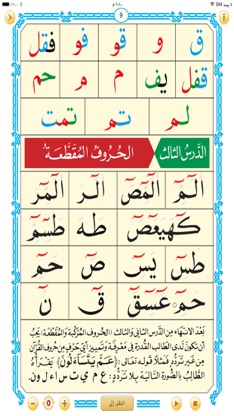 9
ق و قو فو فقل
قفل يف م و حم
لم تم تمت
الدَّرسُ الثالث الحُروفُ المُقَطَّعَة
الٓمٓ الٓمٓصٓ الٓرَ الٓمٓرَ
كٓهيعٓصٓ طٰهٰ طٰسٓمٓ
طٰسٓ يٰسٓ صٓ حٰمٓ
حٰمٓ عٓسٓقٓ قٓ نٓ
بَعْدَ الانتِهاءِ مِنَ الدَّرسِ الثّاني والثالث (الحُروفِ المُرَكَّبَةِ والمُقَطَّعَةِ) يَجِبُ
أن تكونَ لدى الطالبِ القُدرةُ في مَعرِفَةِ وتَمييزِ أيِّ حَرفٍ مِنَ الحُروفِ
مِن غيرِ تَرَدُّدٍ فمثلاً قوله تعالى: ﴿عَمَّ يَتَسَاءَلُونَ﴾ يَقرَأُ
الطالِبُ بالصُّورَةِ التاليةِ بلا تَرَدُّدٍ: ع م ي ت س ا ء ل و ن.
0
انتقل إلى